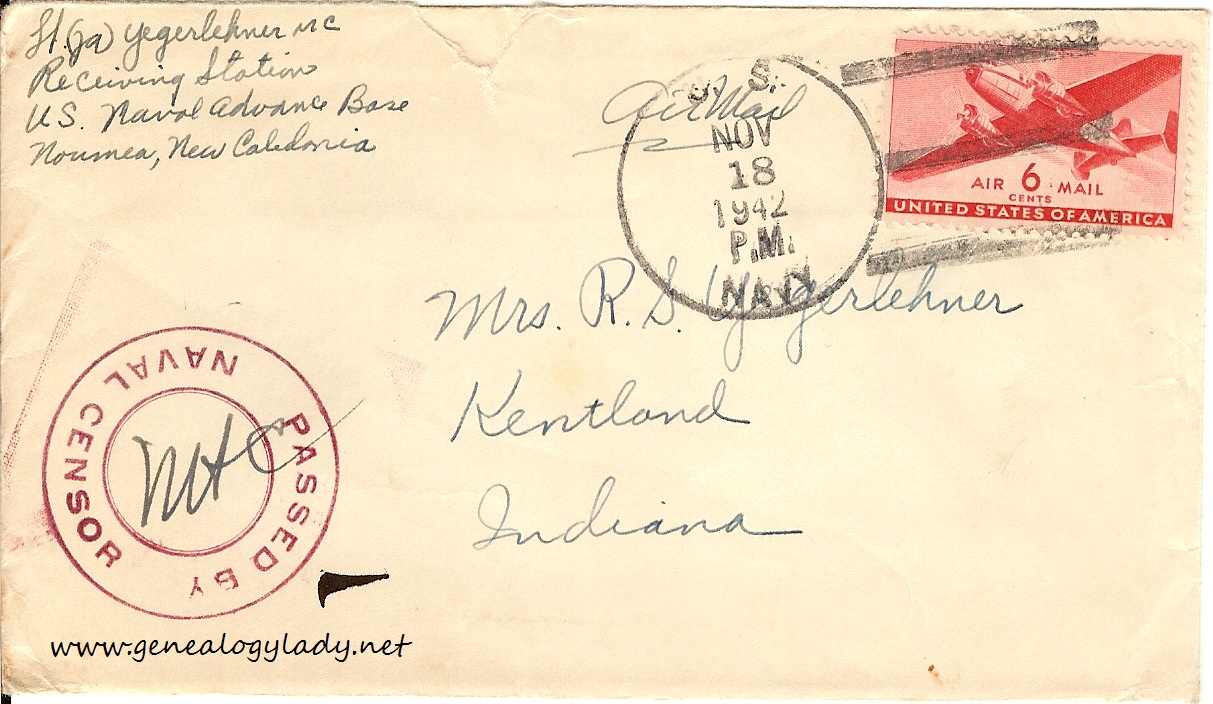 Lt. (jg) Yegerlehner MC
Receiving Station
U.S. Naval Advance Base
Noumea, New Caledonia
Air Mail
U. S.
NOV
18
1942
P.M.
NAVY
AIR 6 MAIL
CENTS
UNITED STATES OF AMERICA
Mrs. R. S. Yegerlehner
Kentland
Indiana
PASSED BY
NAVAL CENSOR
www.genealogylady.net